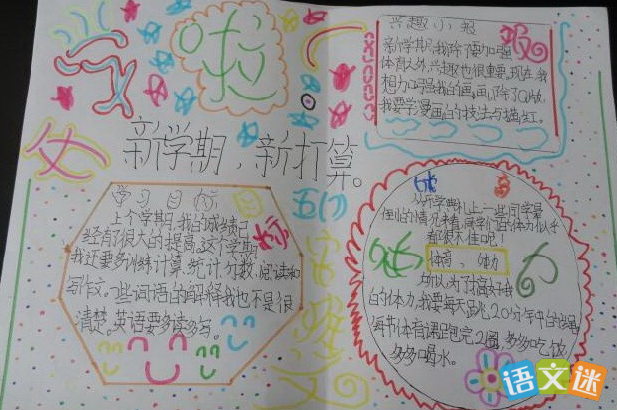 开学啦
兴趣小报
新学期,我除了要加强
体育以外,兴趣也很重要,现在,我
想加强我的画画,除了Q版,
我要学漫画的技法与描红。
新学期,新打算。
学习目标
上个学期,我的成绩已
经有很大的提高,这个学期
我还要多训练计算,统计分数,阅读和
写作文。一些词语的解释我也不是很
清楚。英语要多读多写。
从开学典礼上一些同学晕
倒的情况来看,同学们的体力似乎
都很不佳呢!
体育、体力
所以,为了提高我
的体力,我要每天跳20分钟的绳
每节体育课跑完2圈,多多吃饭
多多喝水。
语文迷